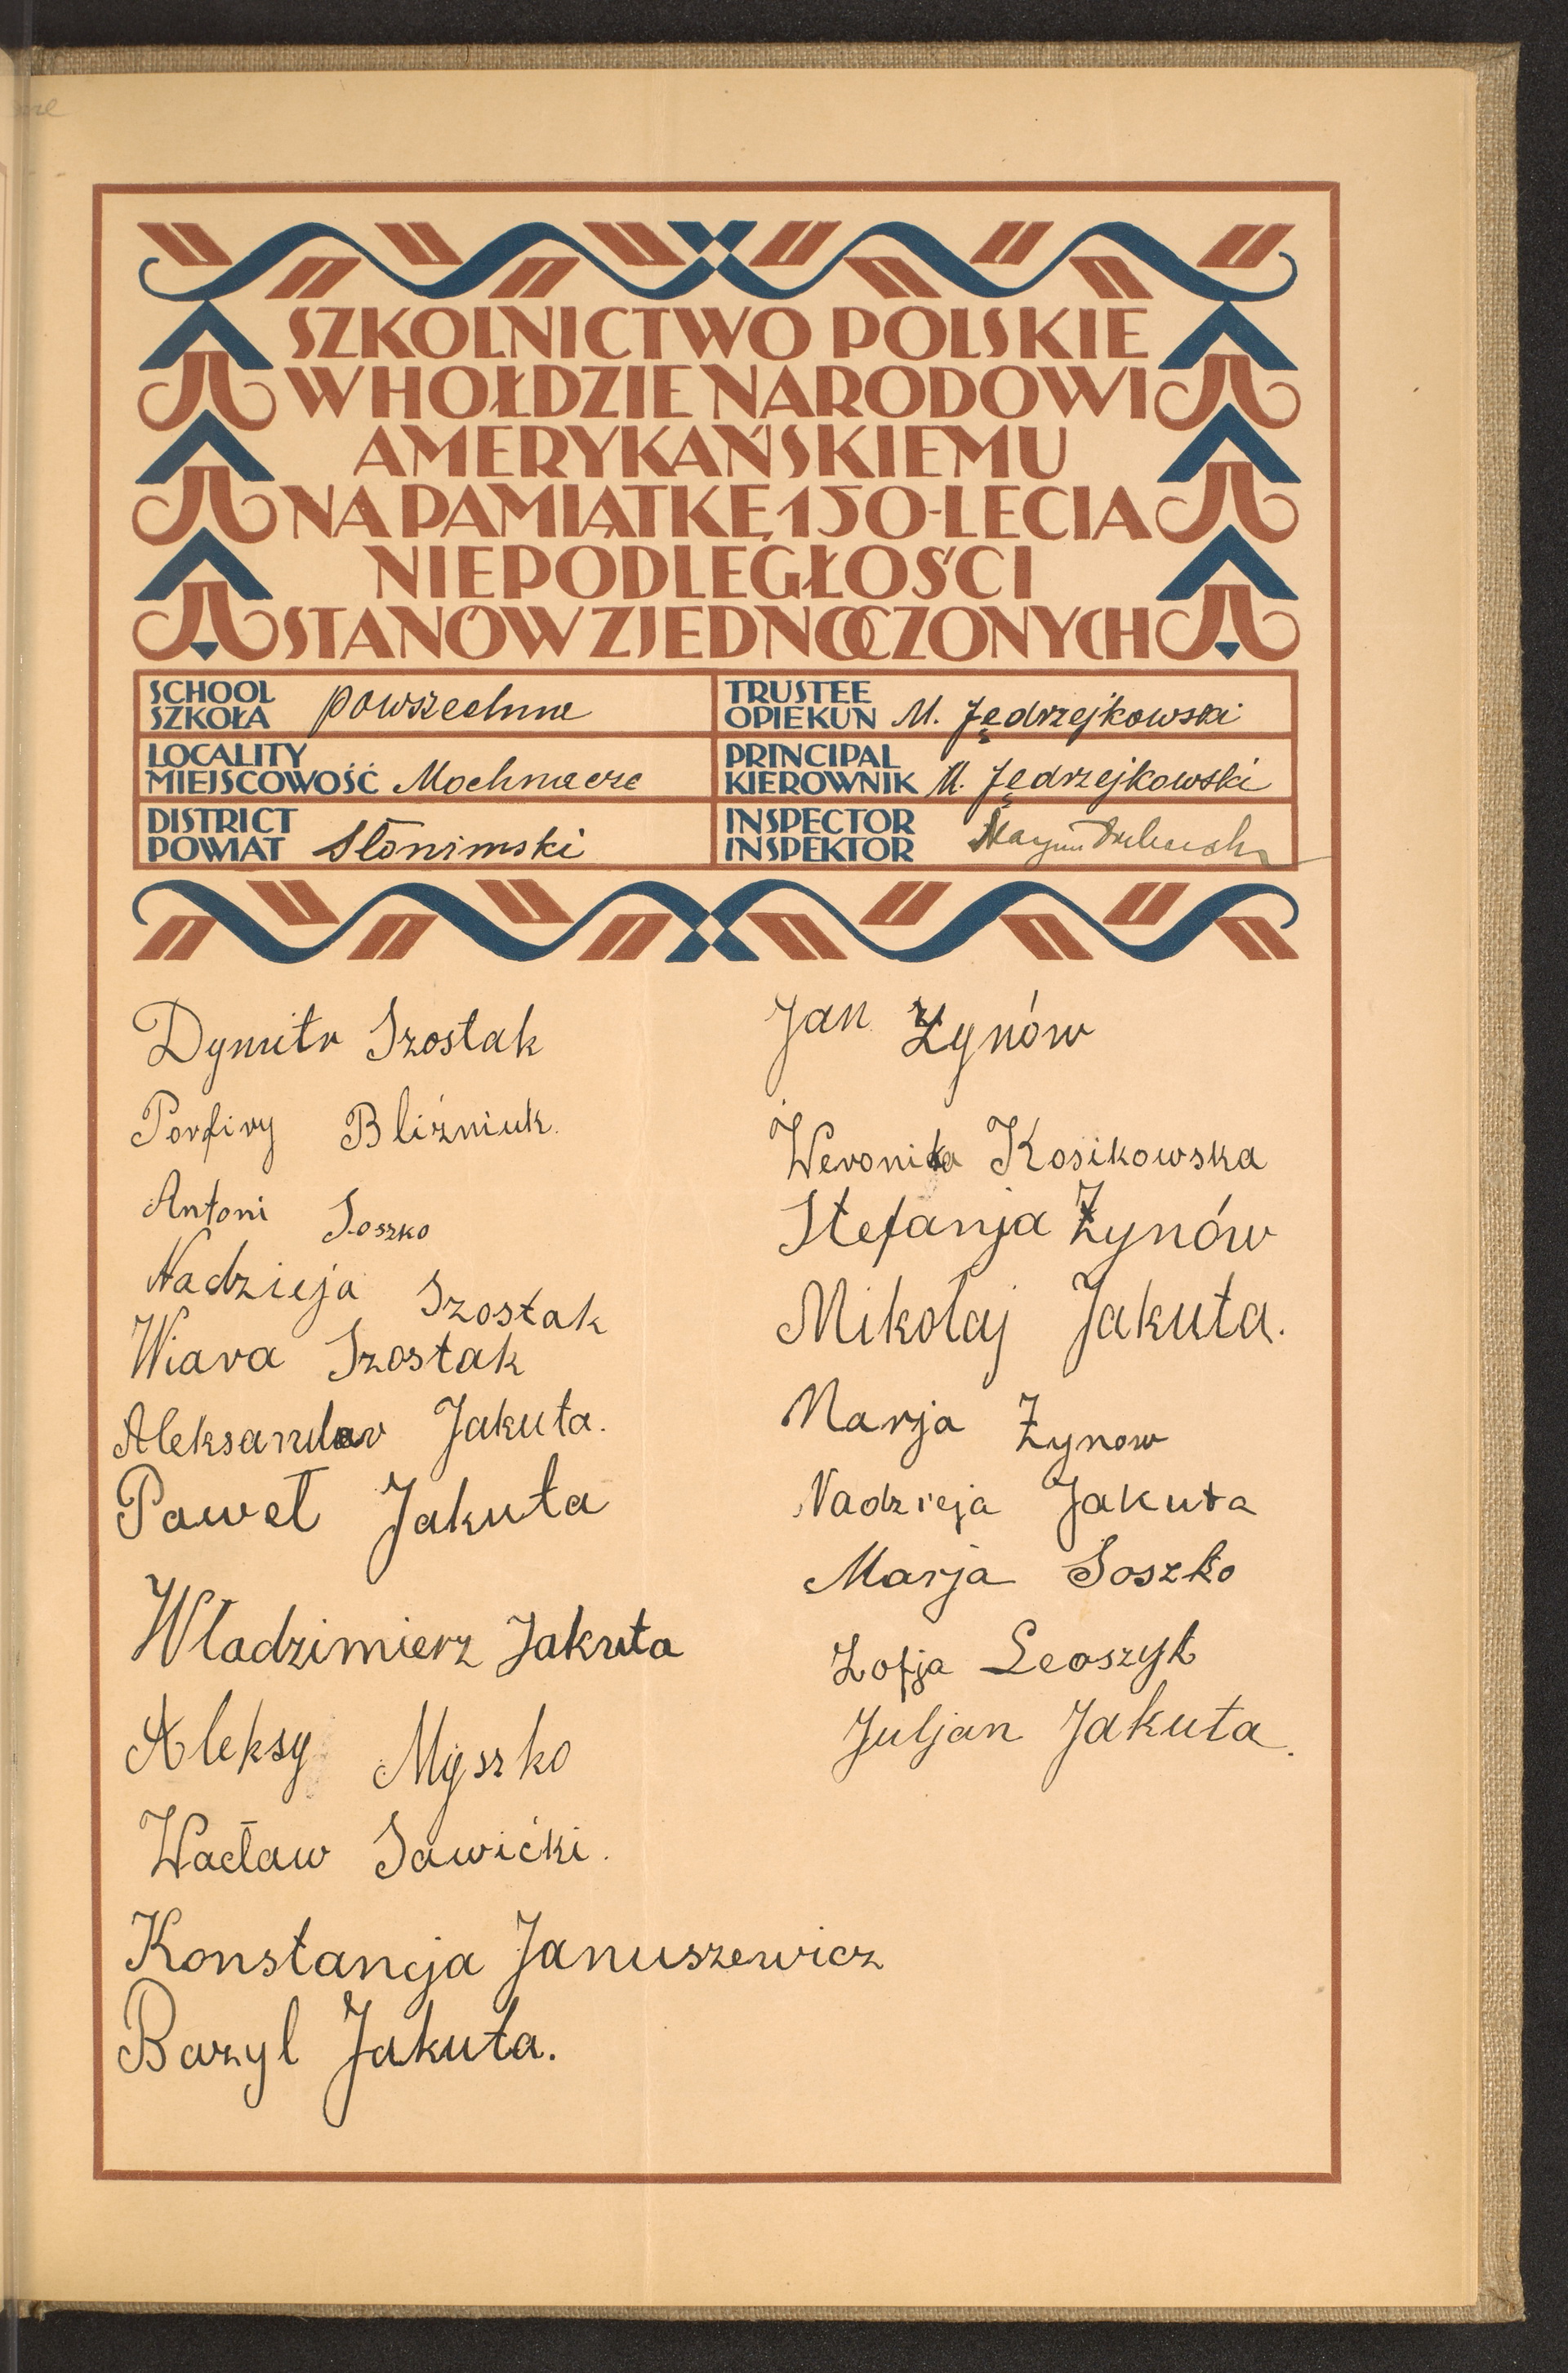 SZKOLNICTWO POLSKIE
W HOŁDZIE NARODOWI
AMERYKAŃSKIEMU
NA PAMIĄTKĘ 150-LECIA
NIEPODLEGŁOŚCI
STANÓW ZJEDNOCZONYCH
SCHOOL
SZKOŁA powszechna
TRUSTEE
OPIEKUN M. Jędrzejkowski
LOCALITY
MIEJSCOWOŚĆ Mochnacze
PRINCIPAL
KIEROWNIK M. Jędrzejkowski
DISTRICT
POWIAT Słonimski
INSPECTOR
INSPEKTOR
Dymitr Szostak
Porfiry Bliźniuk.
Antoni Soszko
Nadzieja Szostak
Wiara Szostak
Aleksander Jakuta.
Paweł Jakuta
Władzimierz Jakuta
Aleksy Myszko
Wacław Sawićki.
Konstancja Januszewicz
Bazyl Jakuta.
Jan Żynów
Weronika Kosikowska
Stefanja Żynów
Mikołaj Jakuta.
Marja Żynow
Nadzieja Jakuta
Marja Soszko
Zofja
Juljan Jakuta.